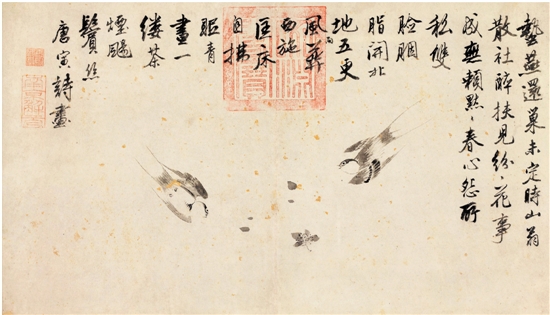 蟄燕還巢未定時山翁
散社醉扶兒紛々花事
成無賴默々春心怨所
私雙
臉胭
脂開北
地五更
風雨葬
西施
匡床
自拂
眠青
晝一
縷茶
煙颺
鬢絲
唐寅詩畫